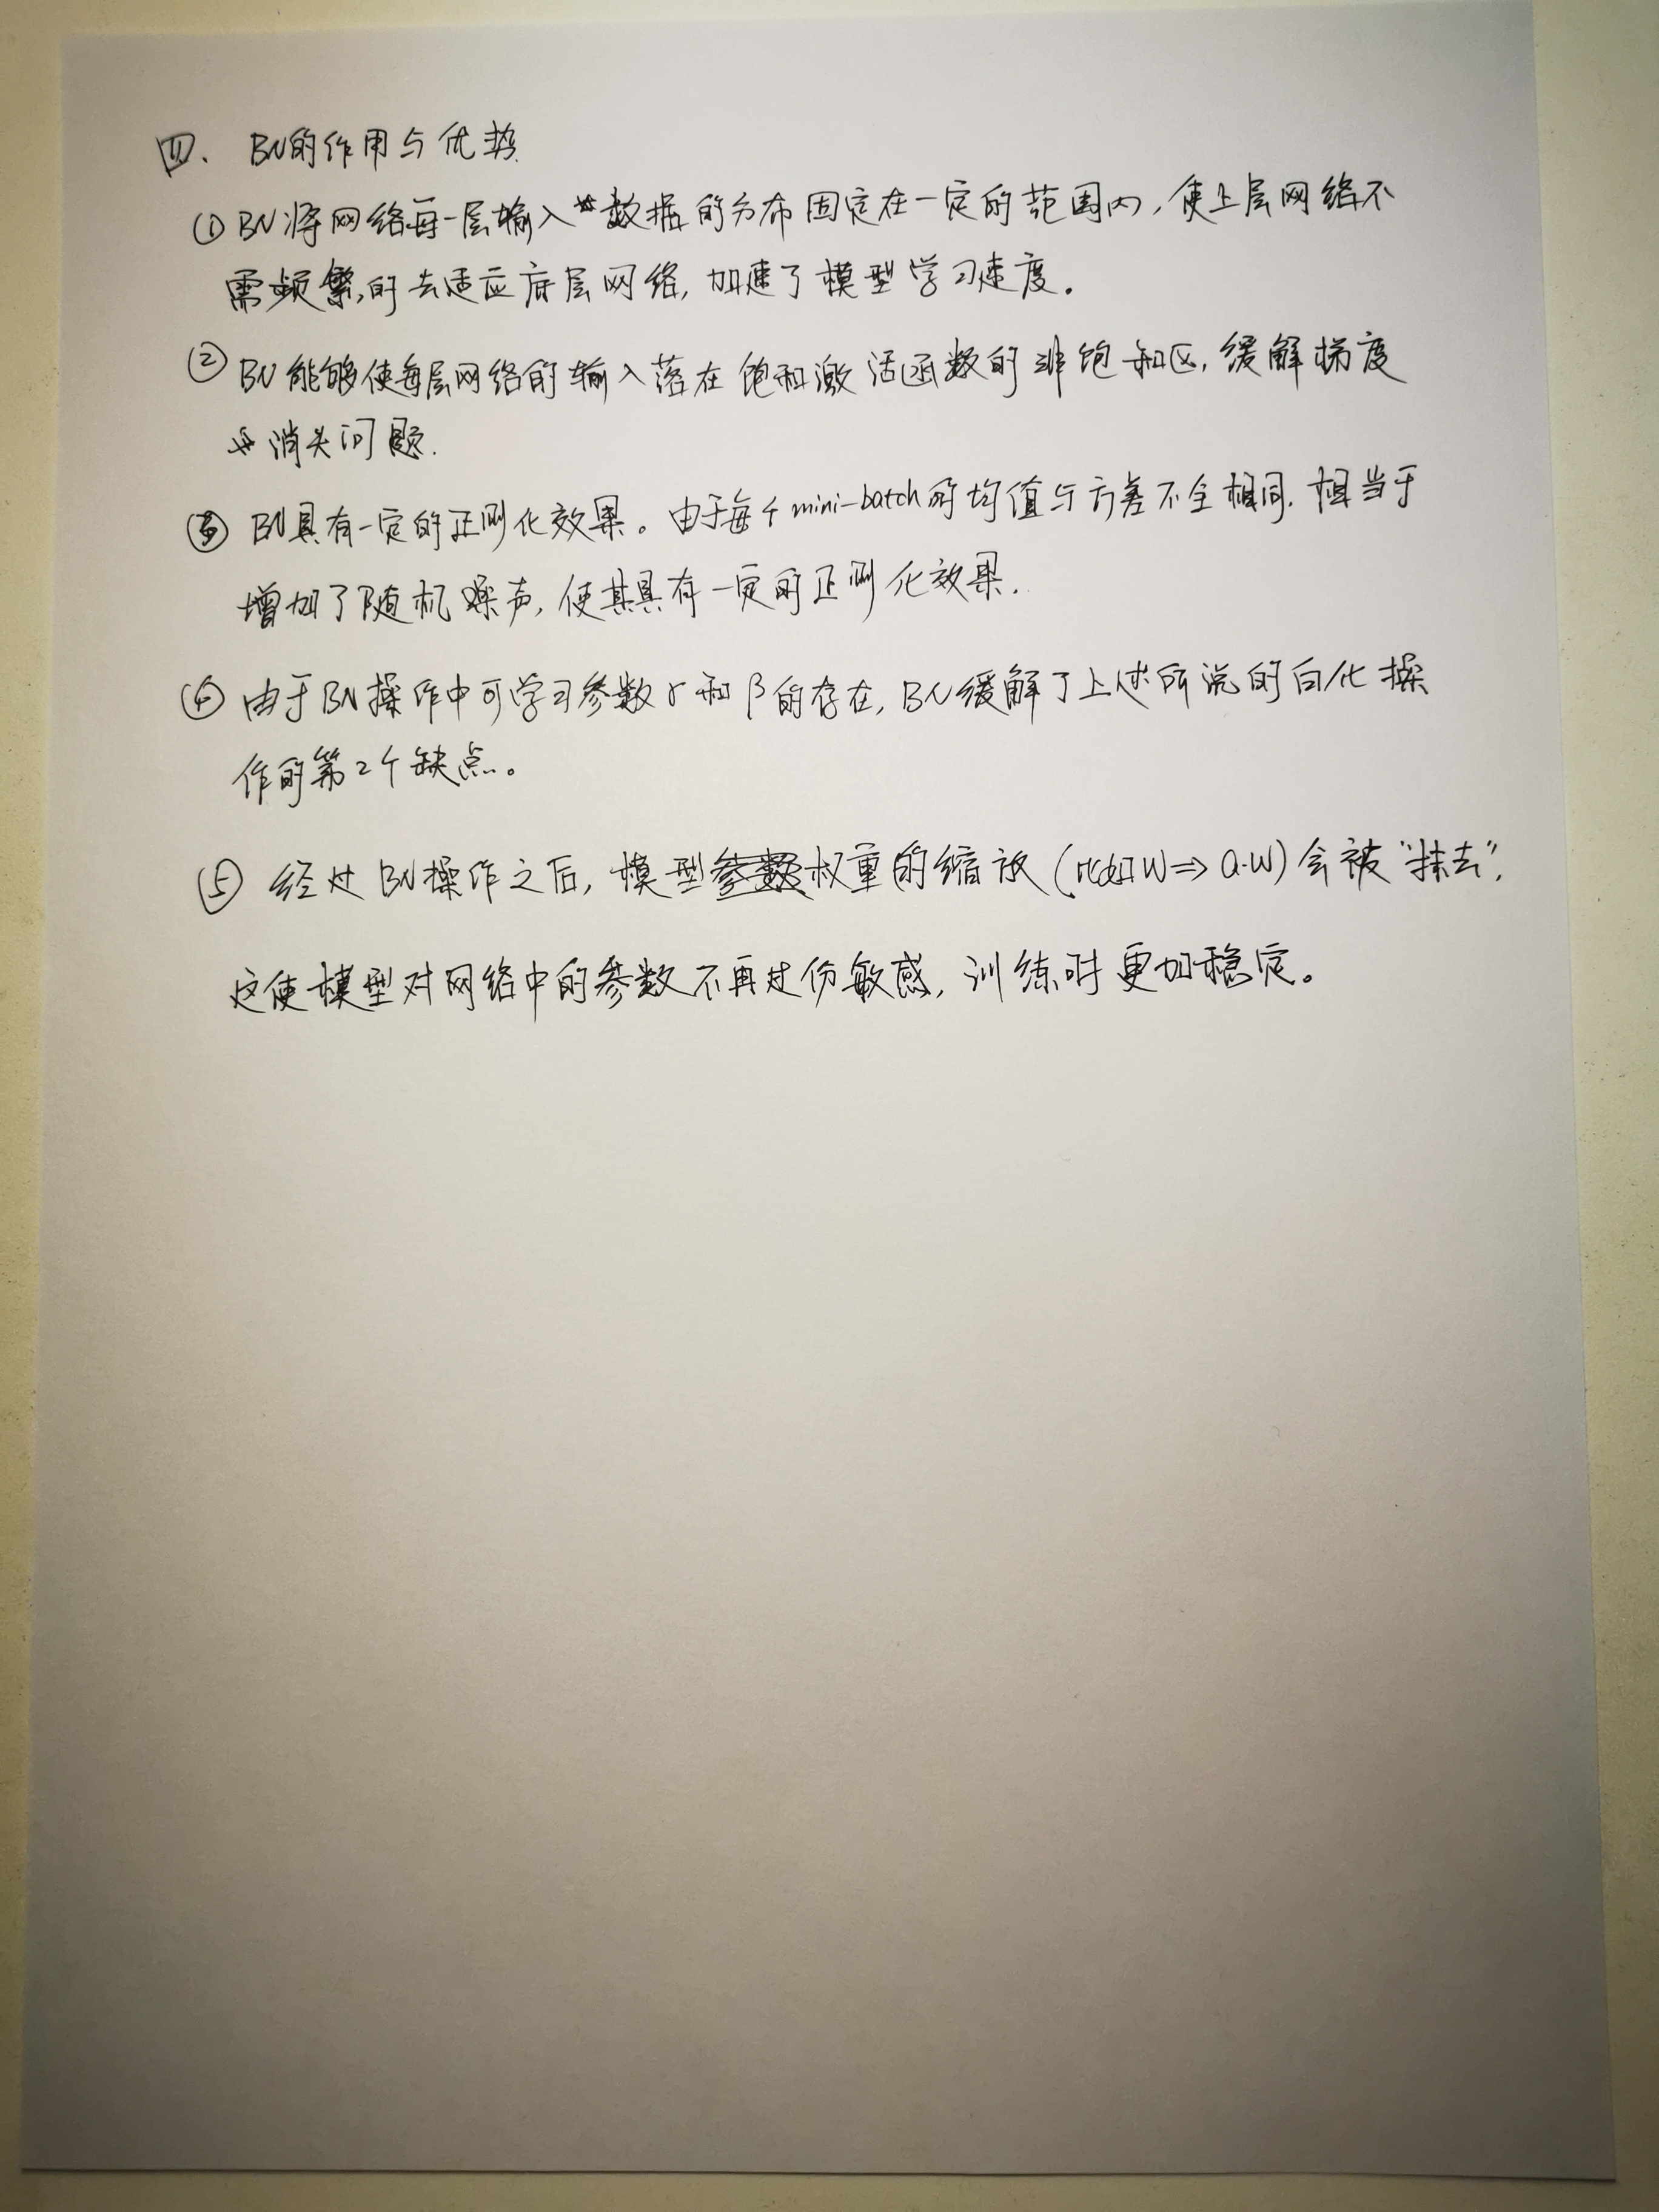 四、BN的作用与优势
① BN将网络每一层输入数据的分布固定在一定的范围内,使上层网络不
需频繁的去适应底层网络,加速了模型学习速度。
② BN能够使每层网络的输入落在饱和激活函数的非饱和区,缓解梯度
消失问题.
③ BN具有一定的正则化效果。由于每个mini-batch的均值与方差不全相同.相当于
增加了随机噪声,使其具有一定的正则化效果.
④ 由于BN操作中可学习参数γ和β的存在,BN缓解了上述所说的白化操
作的第2个缺点。
⑤ 经过BN操作之后,模型权重的缩放(比如W⇒a·W)会被“抹去”,
这使模型对网络中的参数不再过份敏感,训练时更加稳定。